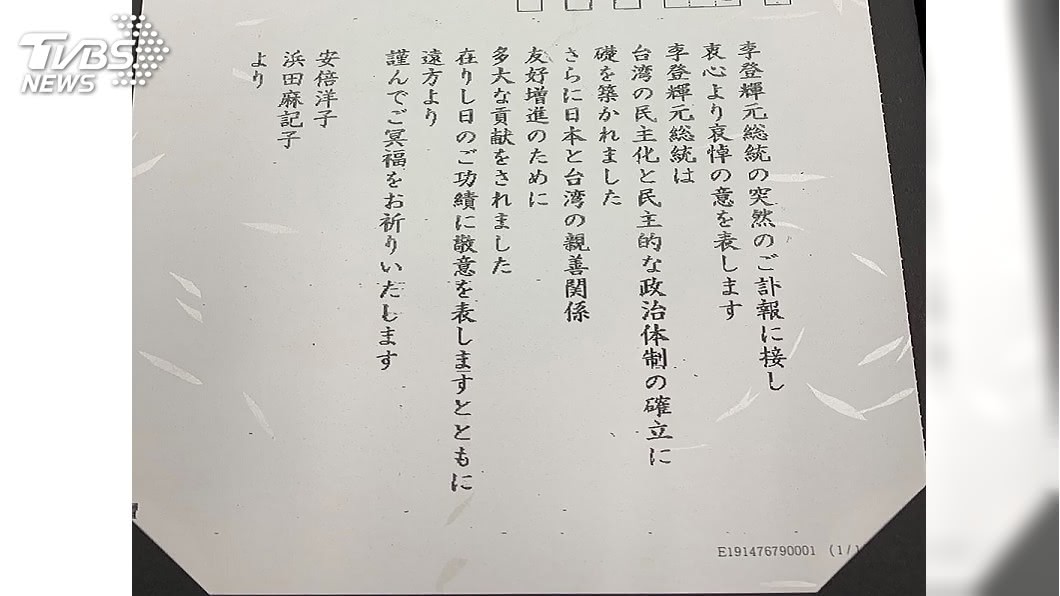 TVBS
NEWS
李登輝元総統の突然のご訃報に接し
衷心より哀悼の意を表します
李登輝元総統は
台湾の民主化と民主的な政治体制の確立に
礎を築かれました
さらに日本と台湾の親善関係
友好増進のために
多大な貢献をされました
在りし日のご功績に敬意を表しますとともに
遠方より
謹んでご冥福をお祈りいたします
安倍洋子
浜田麻記子
より
E191476790001 (1/1